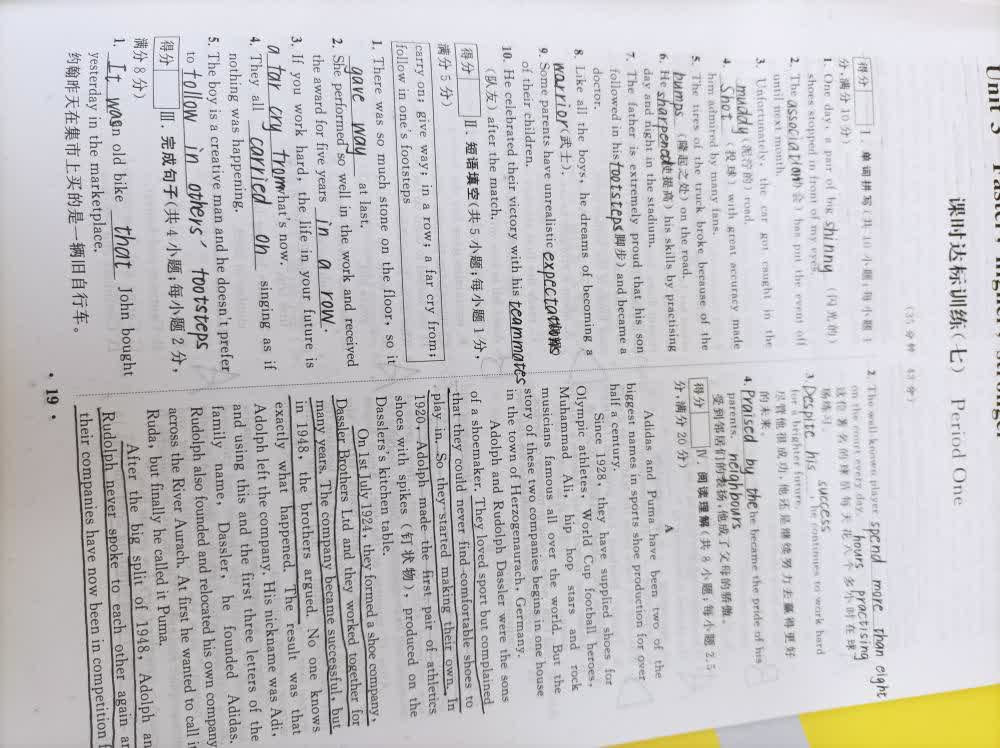 课时达标训练(七) Period One
(35分钟 45分)
得分 Ⅰ. 单词拼写(共10小题;每小题1
分,满分10分)
1. One day, a pair of big shinny (闪光的)
shoes stopped in front of my eyes.
2. The association(协会) has put the event off
until next month.
3. Unfortunately, the car got caught in the
muddy (泥泞的) road.
4. Shot (投球) with great accuracy made
him admired by many fans.
5. The tires of the truck broke because of the
bumps (隆起之处) on the road.
6. He sharpened(提高) his skills by practising
day and night in the stadium.
7. The father is extremely proud that his son
followed in his footsteps(脚步) and became a
doctor.
8. Like all the boys, he dreams of becoming a
warrior(武士).
9. Some parents have unrealistic expectations
of their children.
10. He celebrated their victory with his teammates
(队友) after the match.
得分 Ⅱ. 短语填空(共5小题;每小题1分,
满分5分)
carry on; give way; in a row; a far cry from;
follow in one's footsteps
1. There was so much stone on the floor, so it
gave way at last.
2. She performed so well in the work and received
the award for five years in a row.
3. If you work hard, the life in your future is
a far cry from what's now.
4. They all carried on singing as if
nothing was happening.
5. The boy is a creative man and he doesn't prefer
to follow in others' footsteps
得分 Ⅲ. 完成句子(共4小题;每小题2分,
满分8分)
1. It was an old bike that John bought
yesterday in the marketplace.
约翰昨天在集市上买的是一辆旧自行车。
2. The well-known player spend more than eight
hours practising
on the court every day.
这位著名的球员每天花八个多小时在球
场练习。
3. Despite his success, he continues to work hard
for a brighter future.
尽管他很成功,他还是继续努力去赢得更好
的未来。
4. Praised by the neighbours he became the pride of his
parents.
受到邻居们的表扬,他成了父母的骄傲。
得分 Ⅳ. 阅读理解(共8小题;每小题2.5
分,满分20分)
A
Adidas and Puma have been two of the
biggest names in sports shoe production for over
half a century.
Since 1928, they have supplied shoes for
Olympic athletes, World Cup football heroes,
Muhammad Ali, hip hop stars and rock
musicians famous all over the world. But the
story of these two companies begins in one house
in the town of Herzogenaurach, Germany.
Adolph and Rudolph Dassler were the sons
of a shoemaker. They loved sport but complained
that they could never find comfortable shoes to
play in. So they started making their own. In
1920, Adolph made the first pair of athletics
shoes with spikes (钉状物), produced on the
Dasslers's kitchen table.
On 1st July 1924, they formed a shoe company,
Dassler Brothers Ltd and they worked together for
many years. The company became successful, but
in 1948, the brothers argued. No one knows
exactly what happened. The result was that
Adolph left the company. His nickname was Adi,
and using this and the first three letters of the
family name, Dassler, he founded Adidas.
Rudolph also founded and relocated his own company
across the River Aurach. At first he wanted to call it
Ruda, but finally he called it Puma.
After the big split of 1948, Adolph and
Rudolph never spoke to each other again and
their companies have now been in competition
· 19 ·